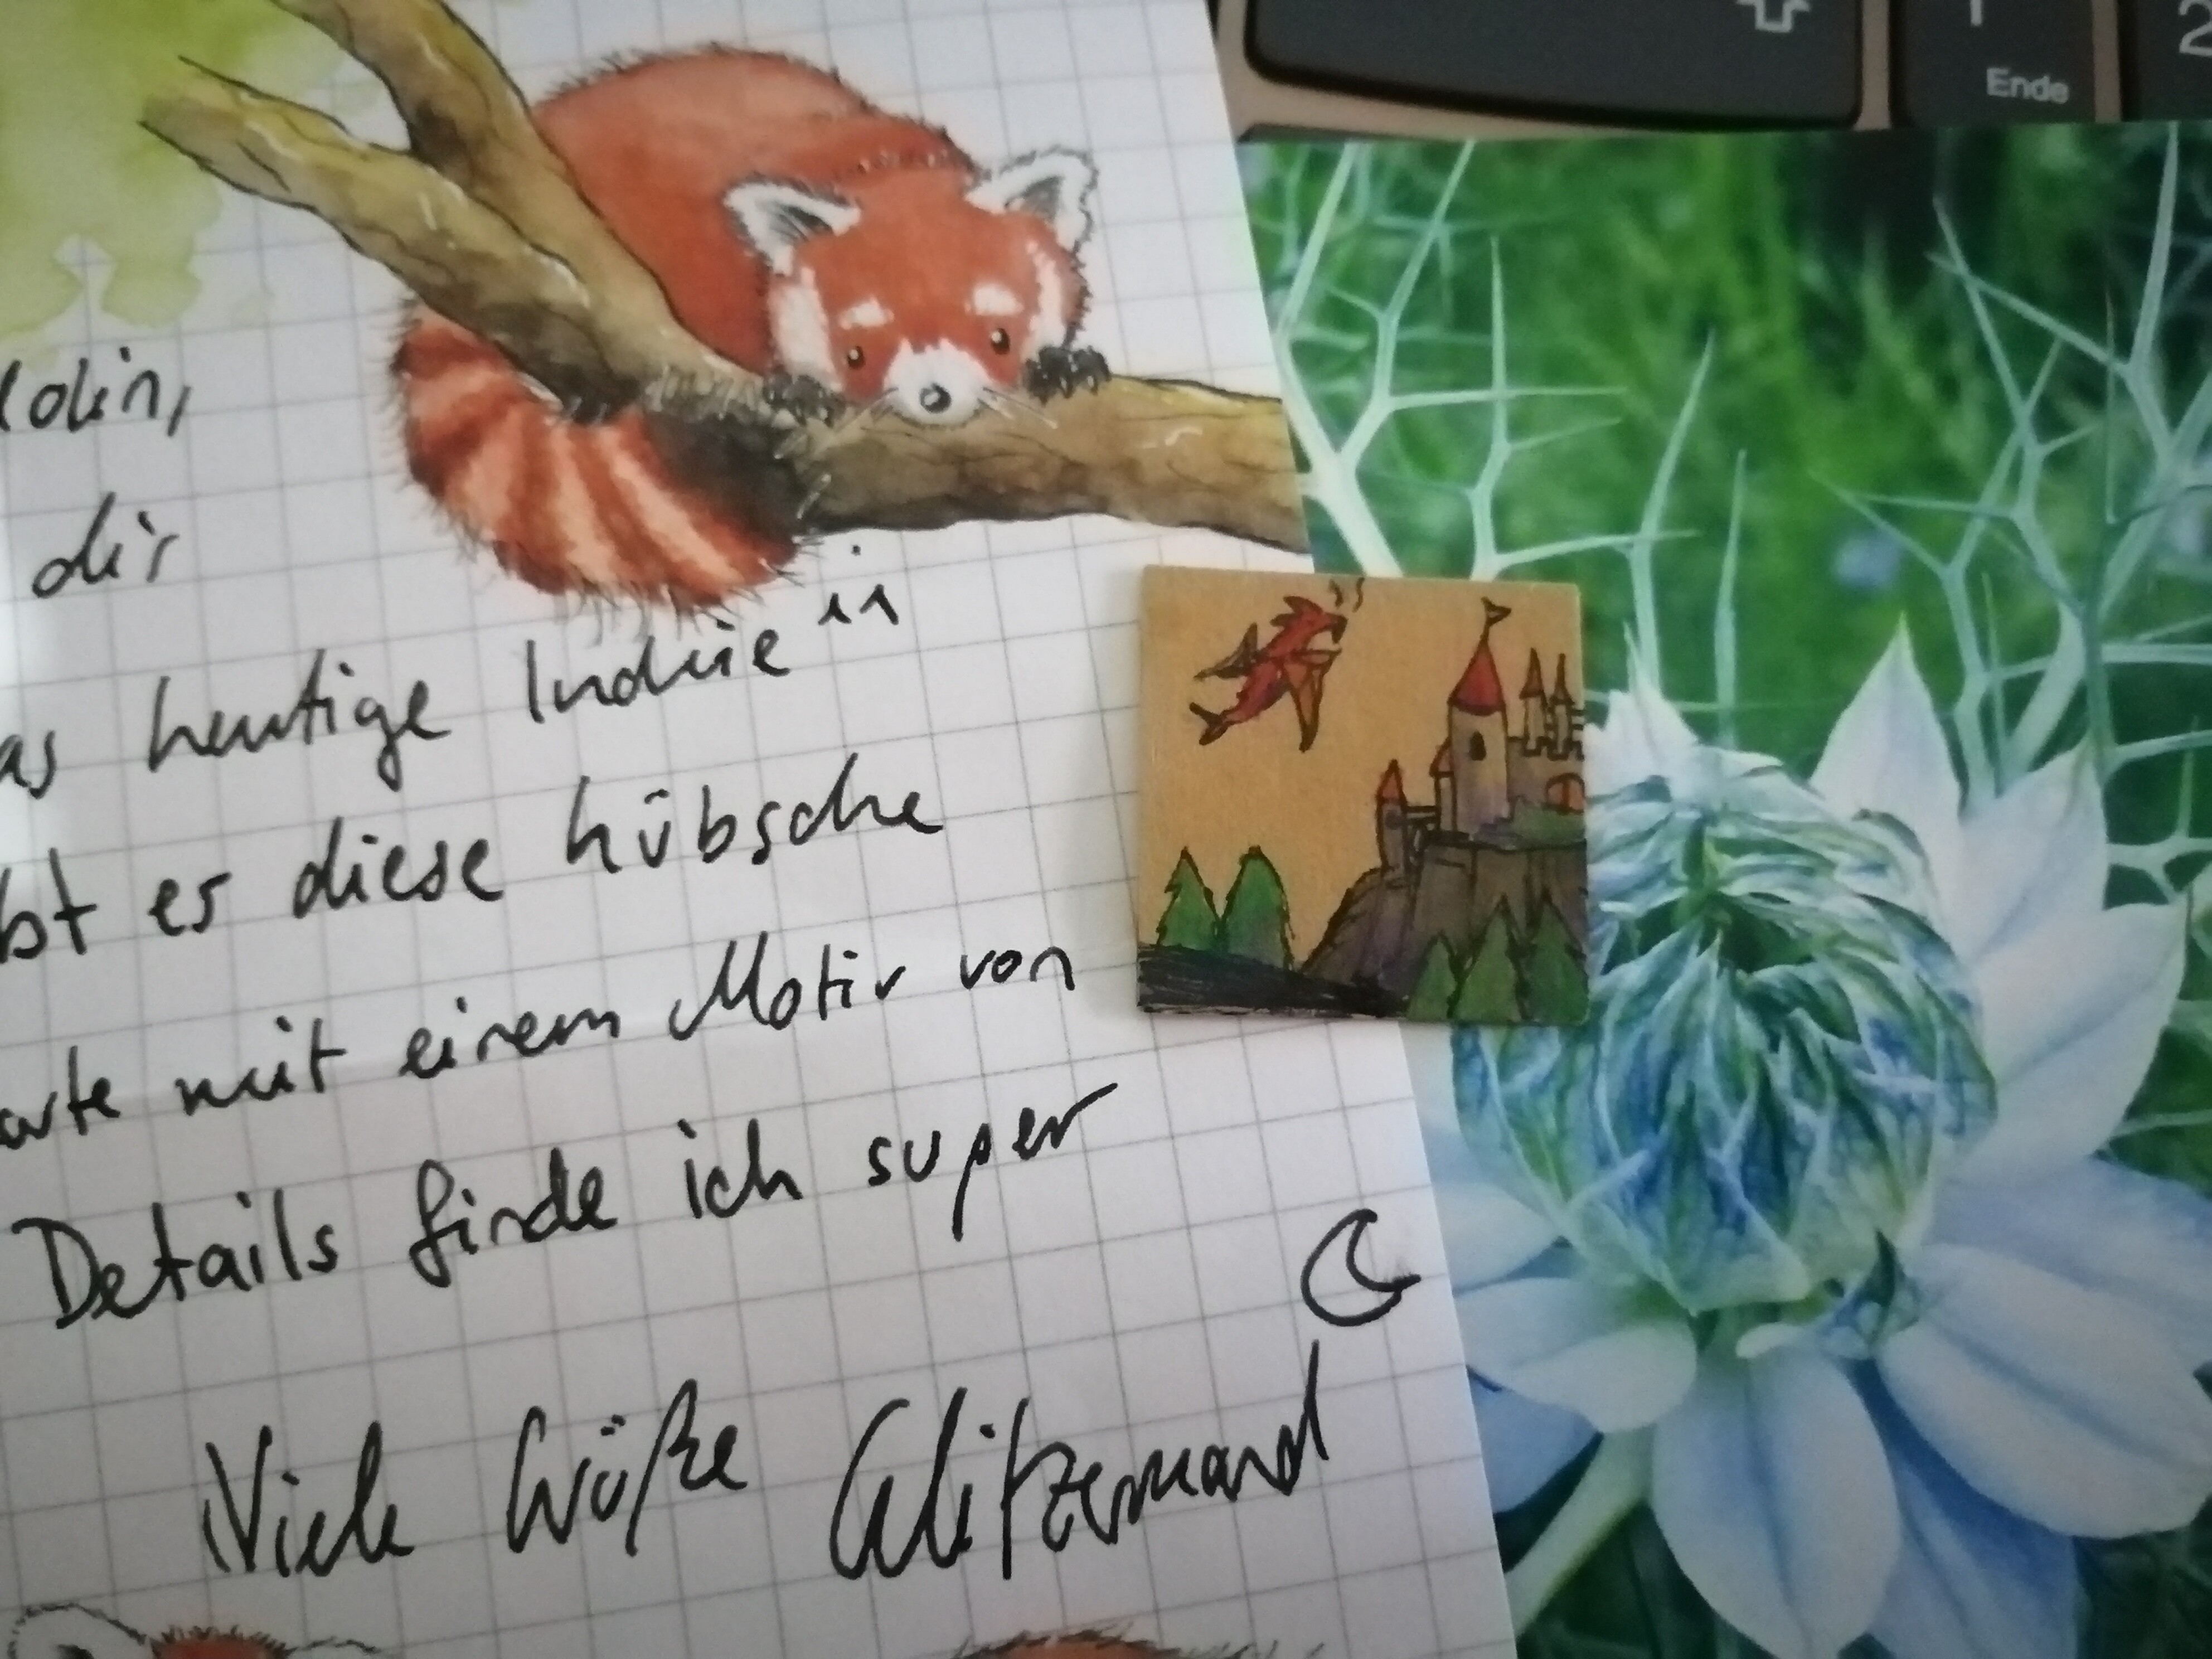 Ende
2
dir
heutige Inchie in
es diese hübsche
mit einem Motiv von
Details finde ich super
Viele Grüße Glitzermond